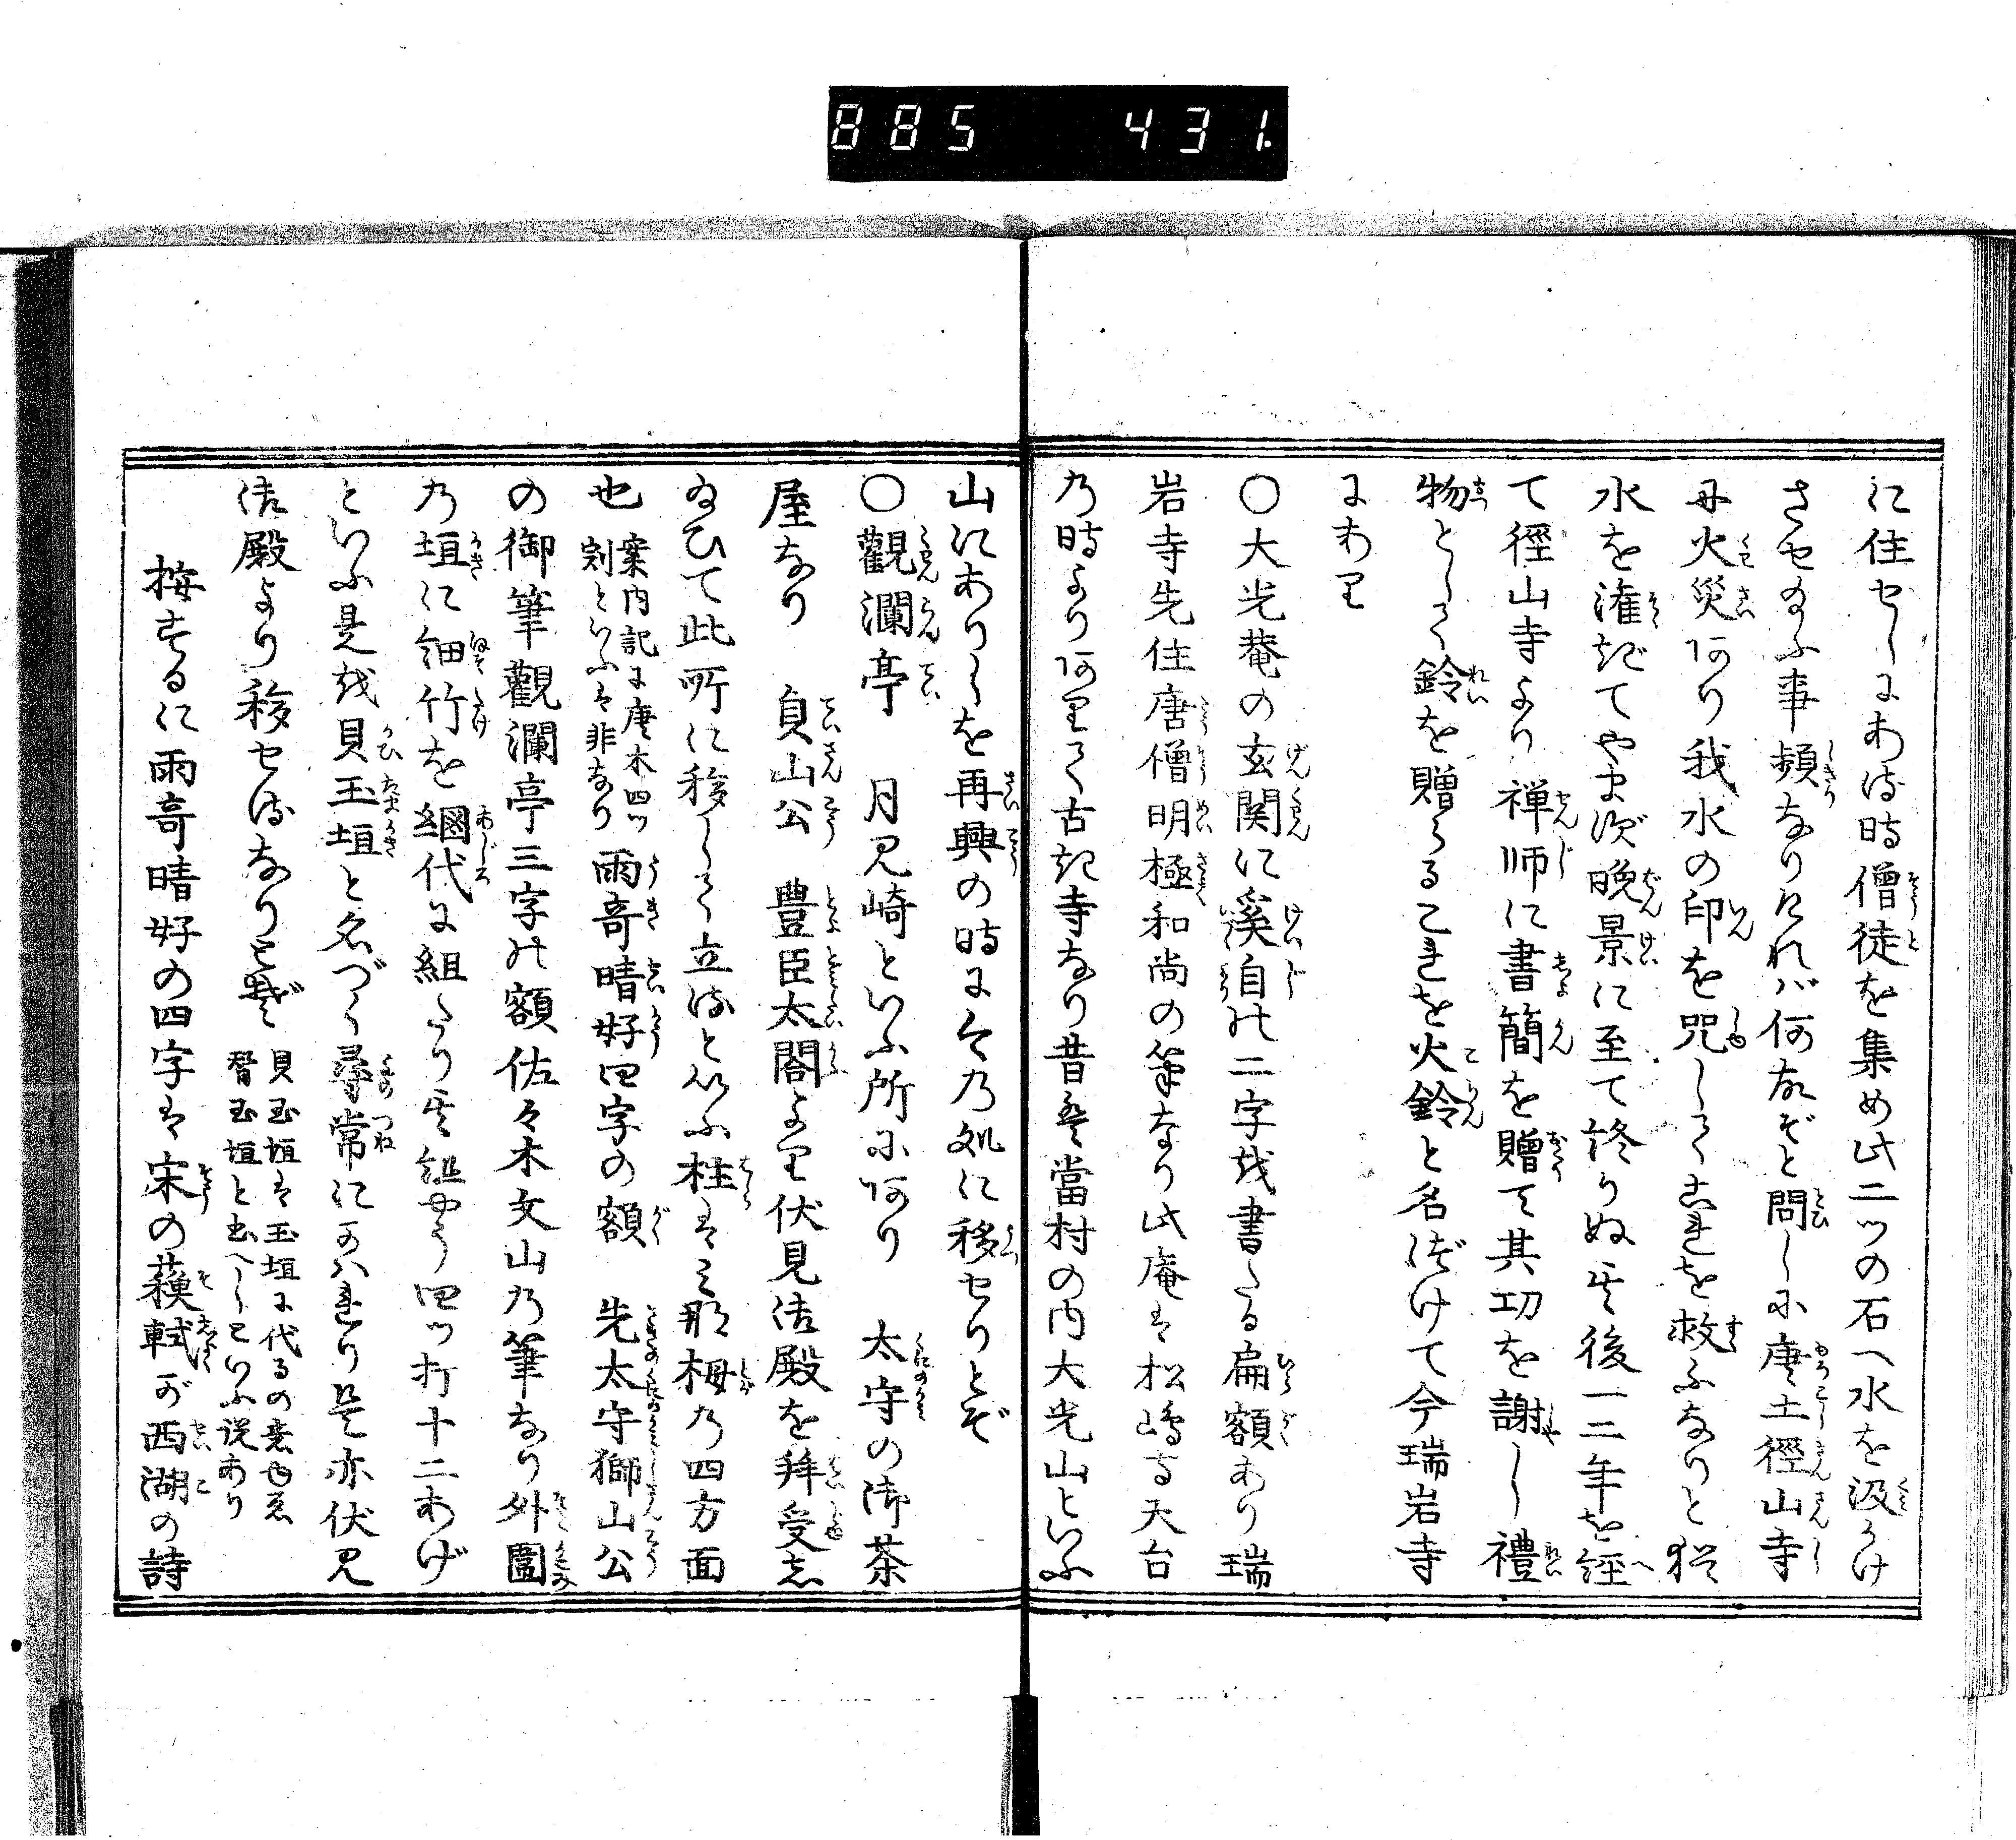 885 431.
に住セしにある時僧徒を集め此二ツの石へ水を汲かけ
させ給ふ事頻なりけれバ何故ぞと問しに唐土徑山寺
に火災あり我水の印を咒してこれを救ふなりと猶
水を潅ぎてやまず晩景に至て終りぬ其後一二年を経
て徑山寺より禅师に書簡を贈て其功を謝し禮
物として鈴を贈らるこれを火鈴と名づけて今瑞岩寺
にあり
○大光菴の玄関に溪自の二字を書たる扁額あり瑞
岩寺先住唐僧明極和尚の筆なり此庵は松嶋寺天台
の時よりありて古き寺なり昔は當村の内大光山といふ
山にありしを再興の時に今の処に移セりとぞ
○觀瀾亭 月見崎といふ所にあり 太守の御茶
屋なり 貞山公 豊臣太閤より伏見御殿を拜受し
給ひて此所に移して立るといふ柱は三那梅の四方面
也 案内記に唐木四ツ
割といふは非なり 雨奇晴好四字の額 先太守獅山公
の御筆觀瀾亭三字の額佐々木文山の筆なり外圍
の垣に細竹を網代に組たり其組やう四ツ打十二あげ
といふ是を貝玉垣と名づく尋常にかハれり是亦伏見
御殿より移せるなりとぞ 貝玉垣は玉垣に代るの意ゆゑ
替玉垣と書へしといふ説あり
按ずるに雨奇晴好の四字は宋の蘓軾が西湖の詩